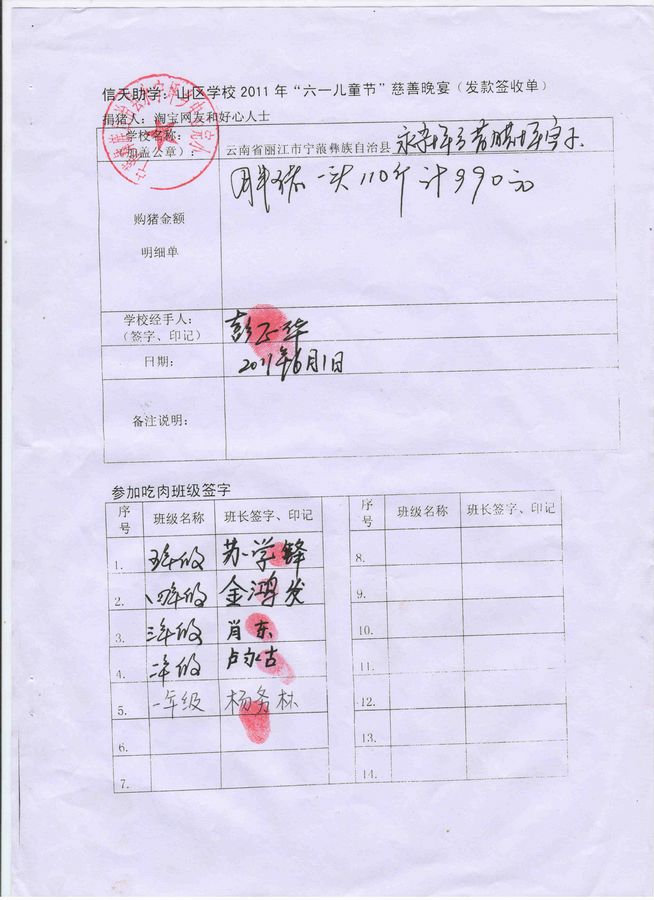 信天助学：山区学校2011年“六一儿童节”慈善晚宴（发款签收单）
捐猪人：淘宝网友和好心人士
学校名称：
（加盖公章）：
云南省丽江市宁蒗彝族自治县
购猪金额
明细单
一头110斤计990元
学校经手人：
（签字、印记）
日期：
2011年6月1日
备注说明：
参加吃肉班级签字
序号 班级名称 班长签字、印记 序号 班级名称 班长签字、印记
1. 五年级 苏学锋 8.
2. 四年级 金鸿发 9.
3. 三年级 肖东 10.
4. 二年级 卢尔古 11.
5. 一年级 杨务林 12.
6. 13.
7. 14.